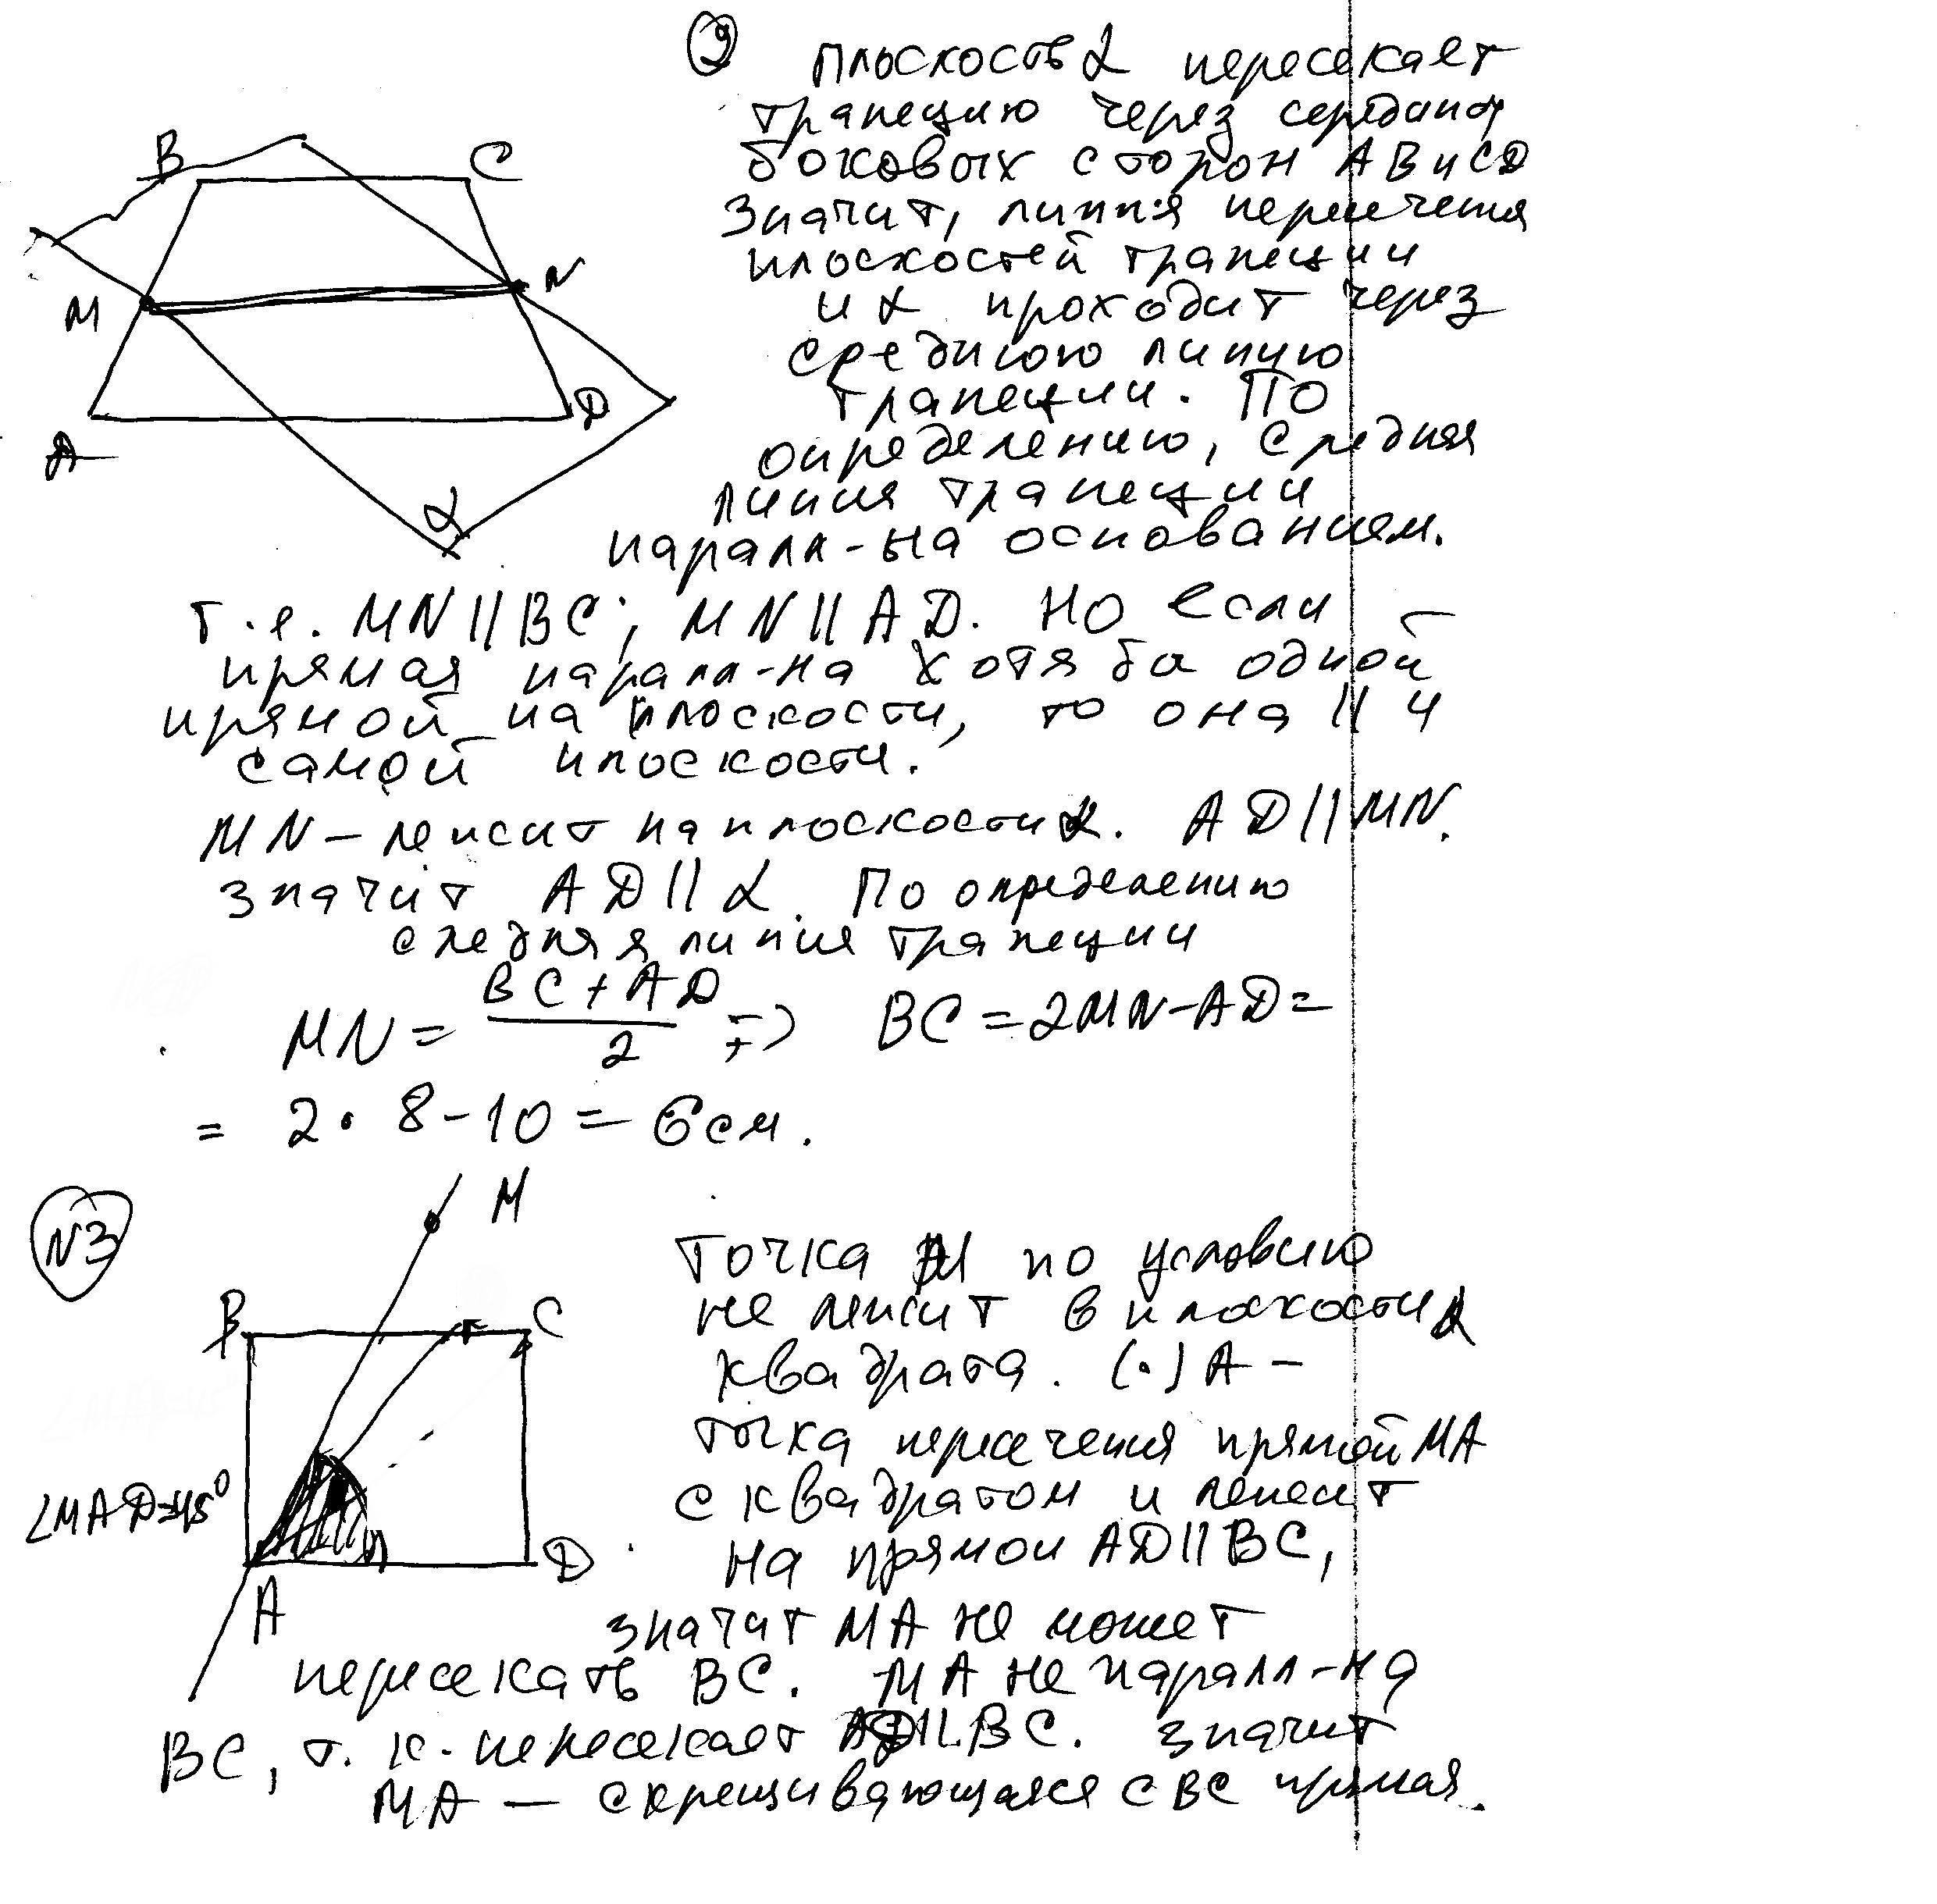 ② Плоскость α пересекает
трапецию через середины
боковых сторон AB и CD
Значит, линия пересечения
плоскостей трапеции
и α проходит через
среднюю линию
трапеции. По
определению, средняя
линия трапеции
паралл-на основаниям.
B C
M N
A D
α
т.е. MN || BC; MN || AD. Но если
прямая паралл-на хотя бы одной
прямой на плоскости, то она || и
самой плоскости.
MN – лежит на плоскости α. AD || MN.
значит AD || α. По определению
средняя линия трапеции
MN = (BC + AD)/2 => BC = 2MN - AD =
= 2 · 8 - 10 = 6 см.
N3
M
B C
∠MAD=45°
A D
Точка M по условию
не лежит в плоскости α
квадрата. (·) A –
точка пересечения прямой MA
с квадратом и лежит
на прямой AD || BC,
значит MA не может
пересекать BC. MA не паралл-на
BC, т.к. пересекает AD || BC. значит
MA — скрещивающаяся с BC прямая.